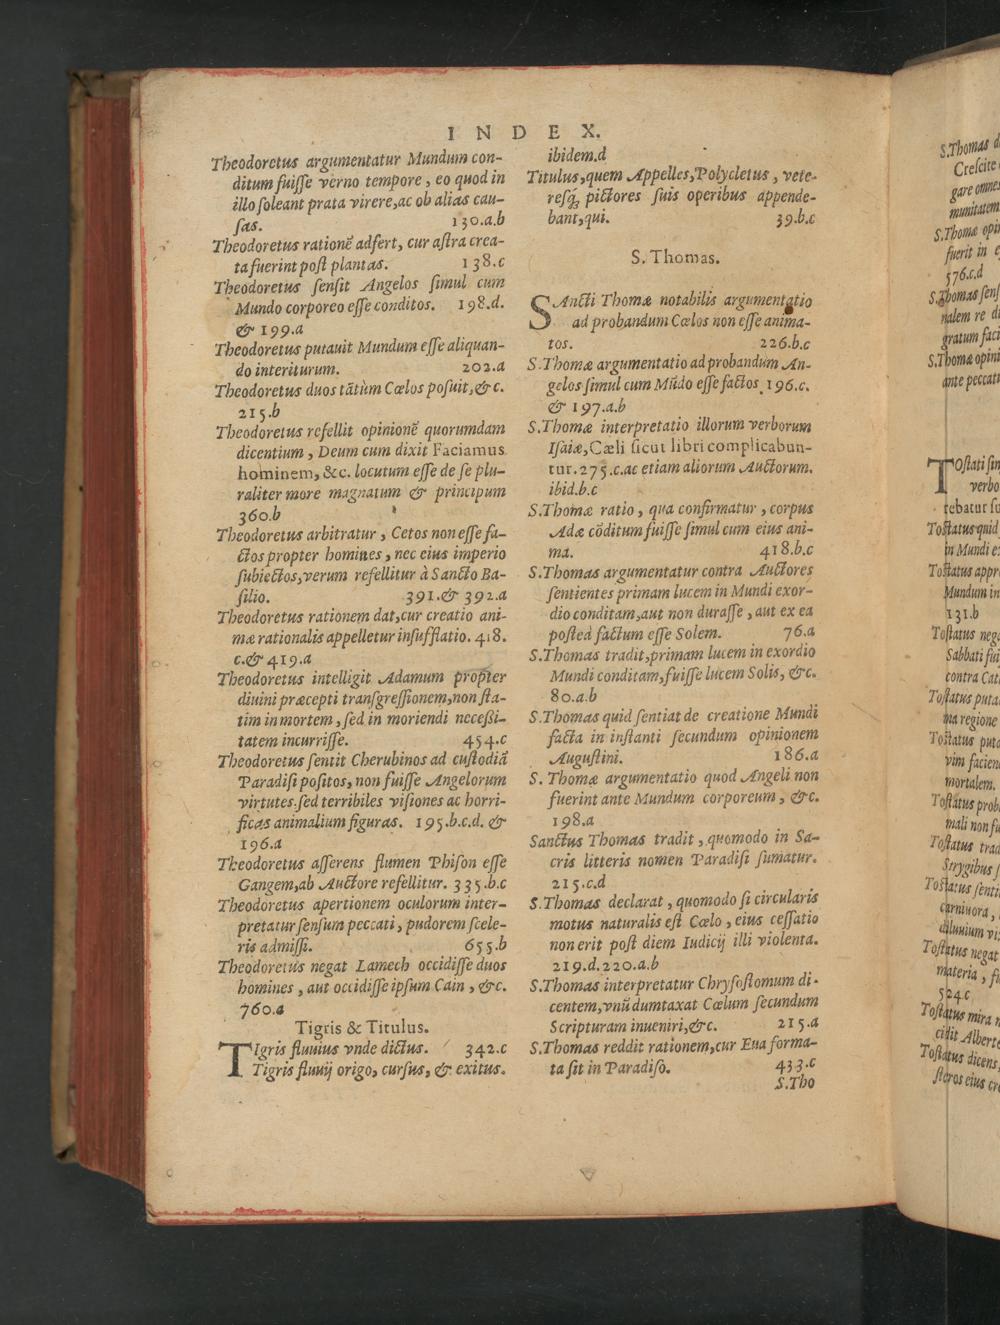 INDEX.
Theodoretus argumentatur Mundum con-
ditum fuiſſe verno tempore, eo quod in
illo ſoleant prata virere, ac ob alias cau-
ſas. 130.a.b
Theodoretus rationẽ adfert, cur aſtra crea-
ta fuerint poſt plantas. 138.c
Theodoretus ſenſit Angelos ſimul cum
Mundo corporeo eſſe conditos. 198.d.
& 199.a
Theodoretus putauit Mundum eſſe aliquan-
do interiturum. 202.a
Theodoretus duos tãtùm Cœlos poſuit, &c.
215.b
Theodoretus refellit opinionẽ quorumdam
dicentium, Deum cum dixit Faciamus
hominem, &c. locutum eſſe de ſe plu-
raliter more magnatum & principum
360.b
Theodoretus arbitratur, Cetos non eſſe fa-
ctos propter homines, nec eius imperio
ſubiectos, verum refellitur à Sancto Ba-
ſilio. 391.& 392.a
Theodoretus rationem dat, cur creatio ani-
mæ rationalis appelletur inſufflatio. 418.
c.& 419.a
Theodoretus intelligit Adamum propter
diuini præcepti tranſgreſſionem, non ſta-
tim in mortem, ſed in moriendi neceßi-
tatem incurriſſe. 454.c
Theodoretus ſentit Cherubinos ad cuſtodiã
Paradiſi poſitos, non fuiſſe Angelorum
virtutes. ſed terribiles viſiones ac horri-
ficas animalium figuras. 195.b.c.d. &
196.a
Theodoretus aſſerens flumen Phiſon eſſe
Gangem, ab Auctore refellitur. 335.b.c
Theodoretus apertionem oculorum inter-
pretatur ſenſum peccati, pudorem ſcele-
ris admiſſi. 655.b
Theodoretus negat Lamech occidiſſe duos
homines, aut occidiſſe ipſum Cain, &c.
760.a
Tigris & Titulus.
TIgris fluuius vnde dictus. 342.c
Tigris fluuij origo, curſus, & exitus.
ibidem.d
Titulus, quem Appelles, Polycletus, vete-
reſq́; pictores ſuis operibus appende-
bant, qui. 39.b.c
S. Thomas.
SAncti Thomæ notabilis argumentatio
ad probandum Cœlos non eſſe anima-
tos. 226.b.c
S.Thomæ argumentatio ad probandum An-
gelos ſimul cum Mũdo eſſe factos. 196.c.
& 197.a.b
S.Thomæ interpretatio illorum verborum
Iſaiæ, Cæli ſicut libri complicabun-
tur. 275.c. ac etiam aliorum Auctorum.
ibid.b.c
S.Thomæ ratio, qua confirmatur, corpus
Adæ cõditum fuiſſe ſimul cum eius ani-
ma. 418.b.c
S.Thomas argumentatur contra Auctores
ſentientes primam lucem in Mundi exor-
dio conditam, aut non duraſſe, aut ex ea
poſteà factum eſſe Solem. 76.a
S.Thomas tradit, primam lucem in exordio
Mundi conditam, fuiſſe lucem Solis, &c.
80.a.b
S.Thomas quid ſentiat de creatione Mundi
facta in inſtanti ſecundum opinionem
Auguſtini. 186.a
S. Thomæ argumentatio quod Angeli non
fuerint ante Mundum corporeum, &c.
198.a
Sanctus Thomas tradit, quomodo in Sa-
cris litteris nomen Paradiſi ſumatur.
215.c.d
S.Thomas declarat, quomodo ſi circularis
motus naturalis eſt Cœlo, eius ceſſatio
non erit poſt diem Iudicij illi violenta.
219.d.220.a.b
S.Thomas interpretatur Chryſoſtomum di-
centem, vnũ dumtaxat Cœlum ſecundum
Scripturam inueniri, &c. 215.a
S.Thomas reddit rationem, cur Eua forma-
ta ſit in Paradiſo. 433.c
S.Tho
S.Thomas
Creſcite
gare omnes
munitatem
S.Thomæ
fuerit in
576.c.d
S.Thomas
nalem re
gratum
S.Thomæ
ante
TOſtati
verbo
tebatur
Toſtatus quid
in Mundi
Toſtatus
Mundum in
131.b
Toſtatus
Sabbati
contra
Toſtatus
regione
Toſtatus
vim
mortalem.
Toſtatus
mali non
Toſtatus
Strygibus
Toſtatus
carniuora,
diluuium
Toſtatus negat
materia,
524.c
Toſtatus mira
Alberte
Toſtatus dicens,
eius